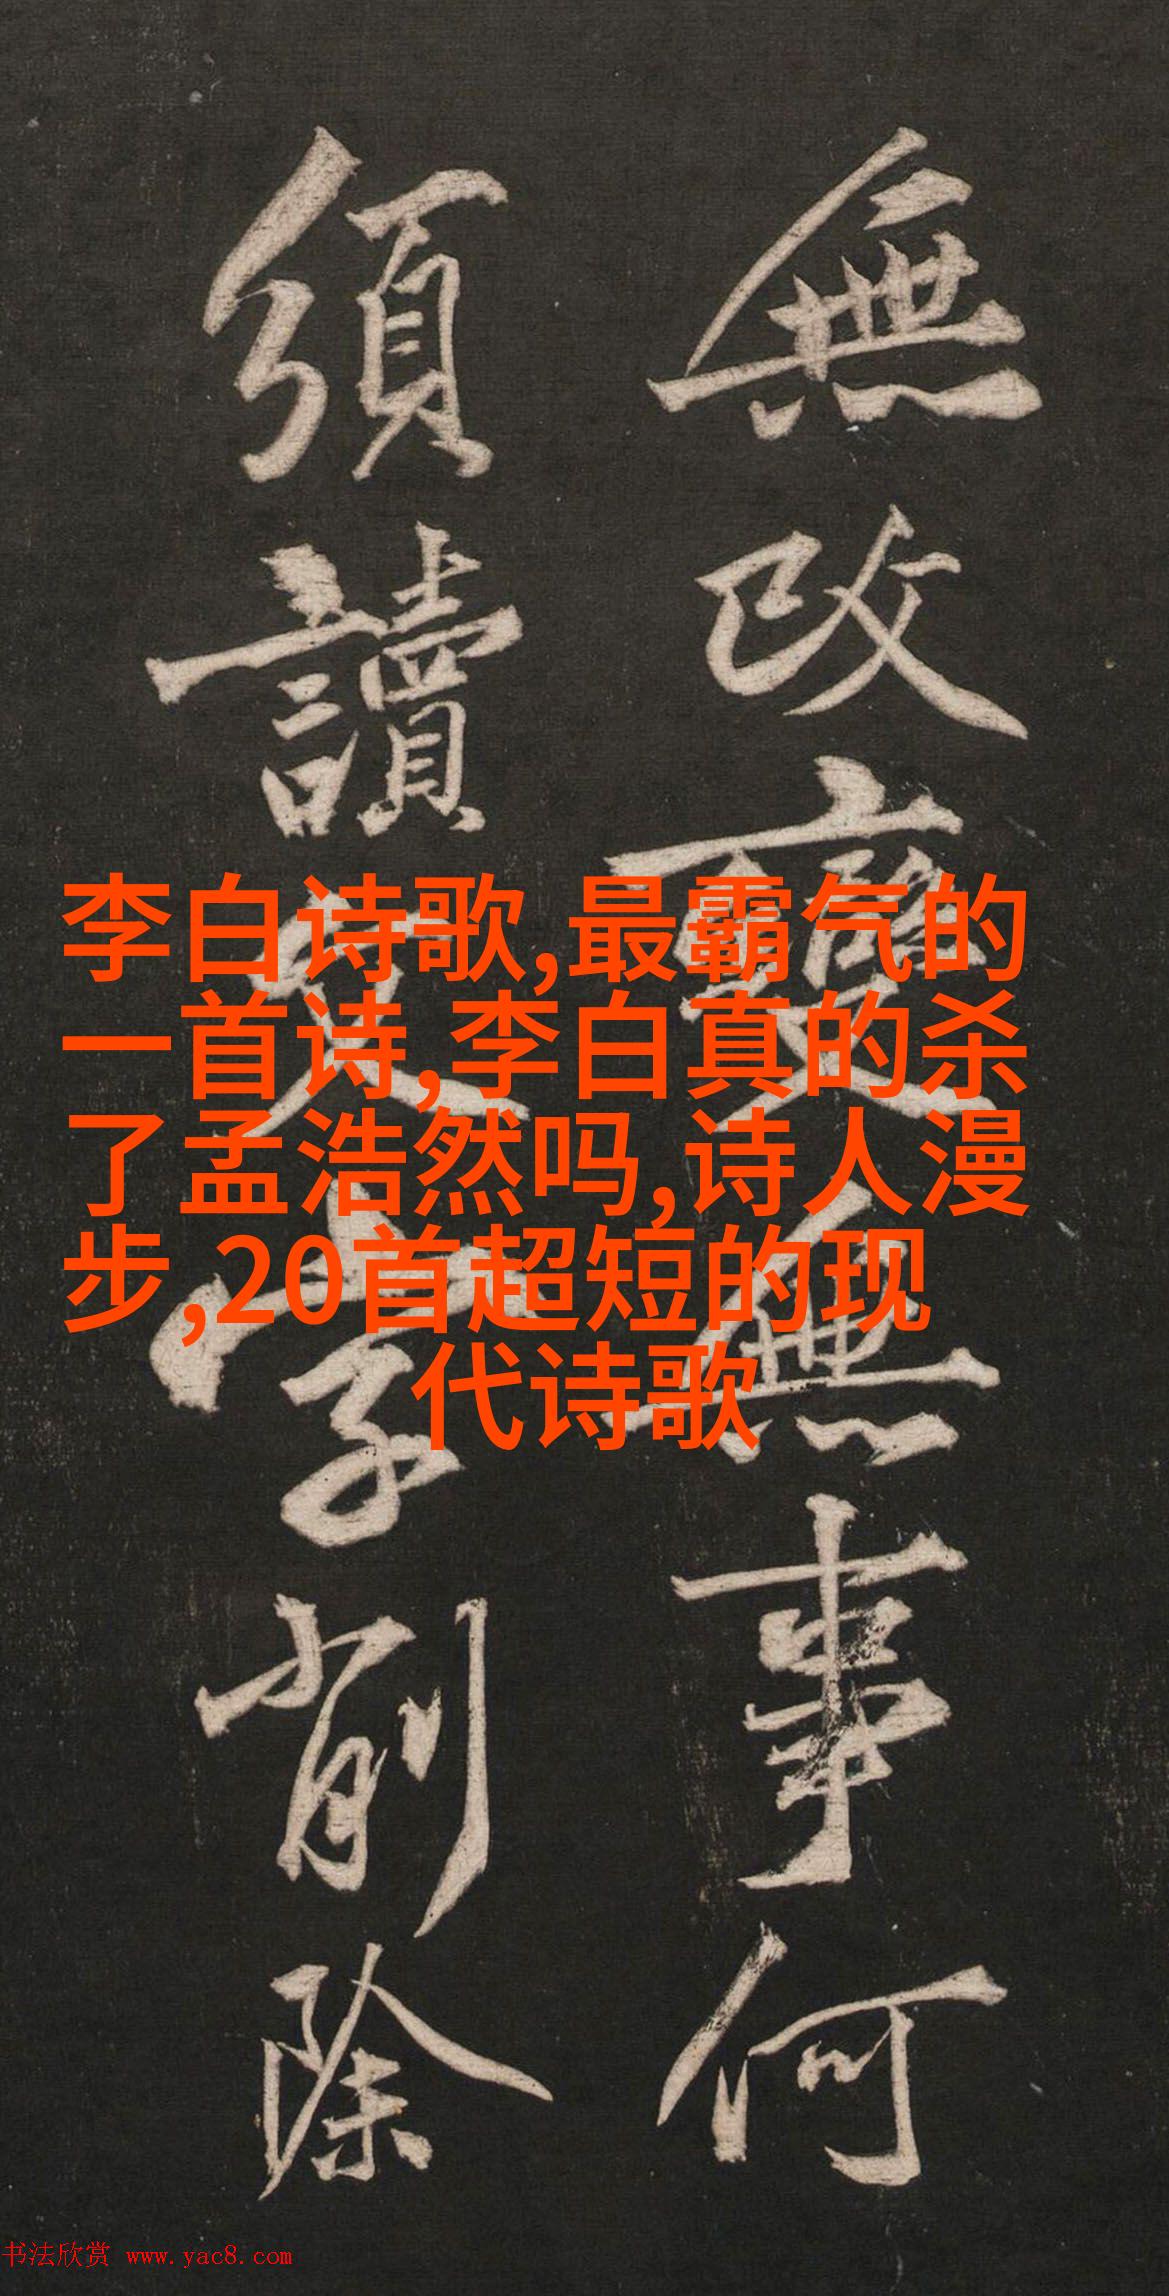 無改變無事何
須讀字削除
李白诗歌,最霸气的
一首诗,李白真的杀
了孟浩然吗,诗人漫
步,20首超短的现
代诗歌
书法欣赏 www.yac8.com